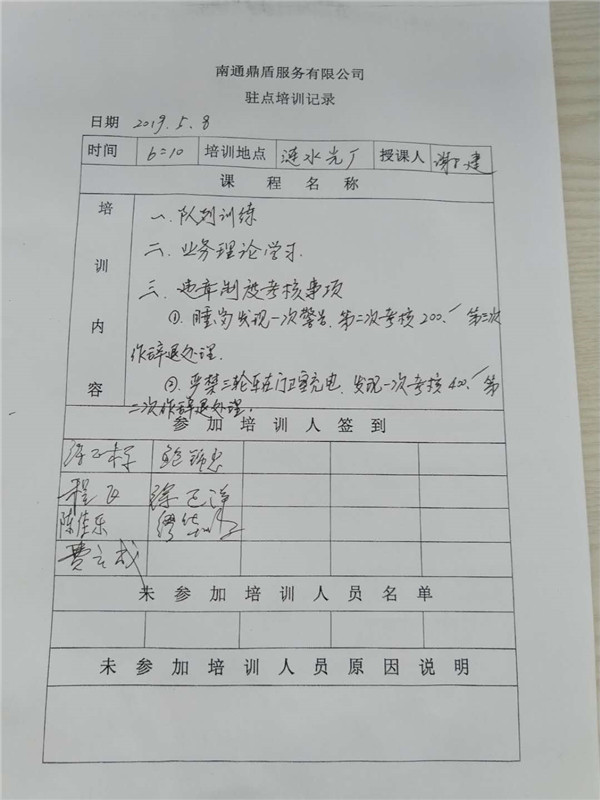 南通鼎盾服务有限公司
驻点培训记录
日期 2019.5.8
时间 6=10 培训地点 涟水光厂 授课人 建
课程名称
培训内容
一、队列训练
二、业务理论学习.
三、违章制被考核事项
①、睡岗发现一次警告、第二次考核200.、第三次
作辞退处理.
②、严禁三轮车在门卫室充电、发现一次考核400.、第
二次作辞退处理.
参加培训人签到
鲍
程
陈佳乐
费
未参加培训人员名单
未参加培训人员原因说明